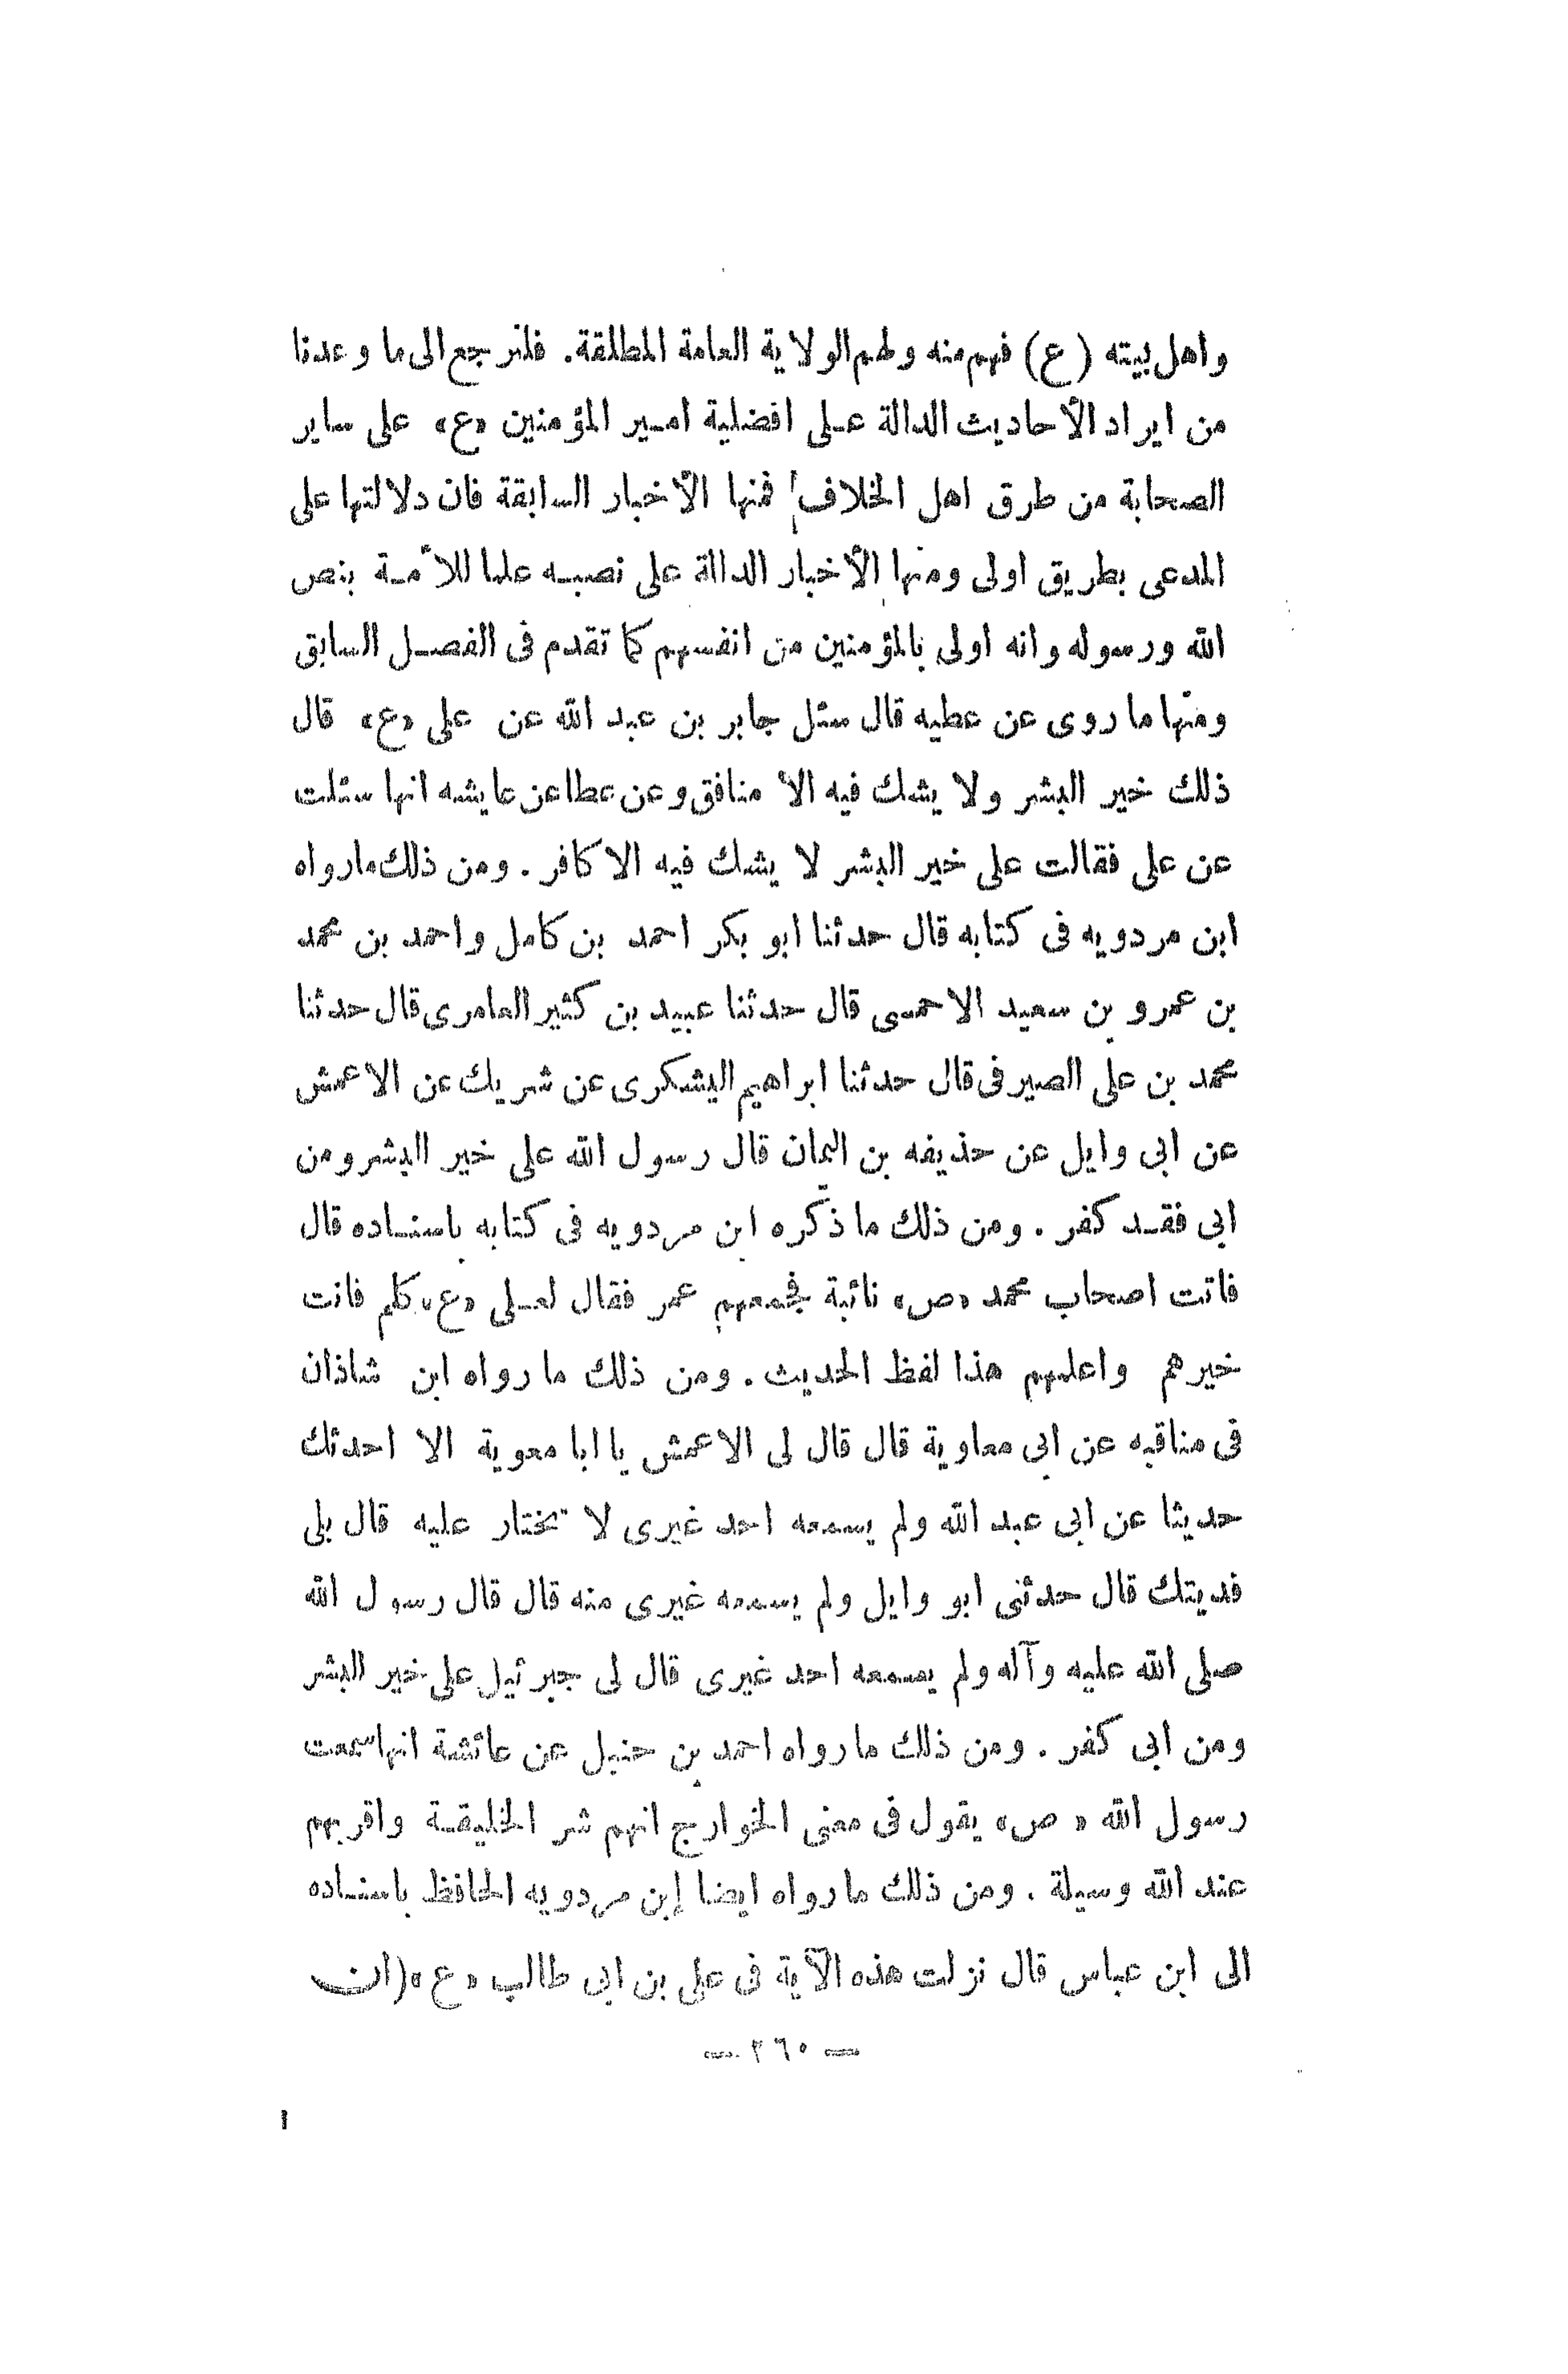 واهل بيته (ع) فهم منه ولهم الولاية العامة المطلقة. فلنرجع الى ما وعدنا
من ايراد الأحاديث الدالة على افضلية امير المؤمنين «ع» على ساير
الصحابة من طرق اهل الخلاف فمنها الأخبار السابقة فان دلالتها على
المدعى بطريق اولى ومنها الأخبار الدالة على نصبه علما للأمة بنص
الله ورسوله وانه اولى بالمؤمنين من انفسهم كما تقدم فى الفصل السابق
ومنها ما روى عن عطيه قال سئل جابر بن عبد الله عن على «ع» قال
ذلك خير البشر ولا يشك فيه الا منافق وعن عطا عن عايشه انها سئلت
عن على فقالت على خير البشر لا يشك فيه الا كافر. ومن ذلك ما رواه
ابن مردويه فى كتابه قال حدثنا ابو بكر احمد بن كامل واحمد بن محمد
بن عمرو بن سعيد الاحمسى قال حدثنا عبيد بن كثير العامرى قال حدثنا
محمد بن على الصيرفى قال حدثنا ابراهيم اليشكرى عن شريك عن الاعمش
عن ابى وايل عن حذيفه بن اليمان قال رسول الله على خير البشر ومن
ابى فقد كفر. ومن ذلك ما ذكره ابن مردويه فى كتابه باسناده قال
فاتت اصحاب محمد «ص» نائبة فجمعهم عمر فقال لعلى «ع» كلم فانت
خيرهم واعلمهم هذا لفظ الحديث. ومن ذلك ما رواه ابن شاذان
فى مناقبه عن ابى معاوية قال قال لى الاعمش يا ابا معوية الا احدثك
حديثا عن ابى عبد الله ولم يسمعه احد غيرى لا تختار عليه قال بلى
فديتك قال حدثنى ابو وايل ولم يسمعه غيرى منه قال قال رسول الله
صلى الله عليه وآله ولم يسمعه احد غيرى قال لى جبرئيل على خير البشر
ومن ابى كفر. ومن ذلك ما رواه احمد بن حنبل عن عائشة انها سمعت
رسول الله «ص» يقول فى معنى الخوارج انهم شر الخليقة واقربهم
عند الله وسيلة. ومن ذلك ما رواه ايضا إبن مردويه الحافظ باسناده
الى ابن عباس قال نزلت هذه الآية فى على بن ابى طالب «ع» (ان
— ٢٦٠ —